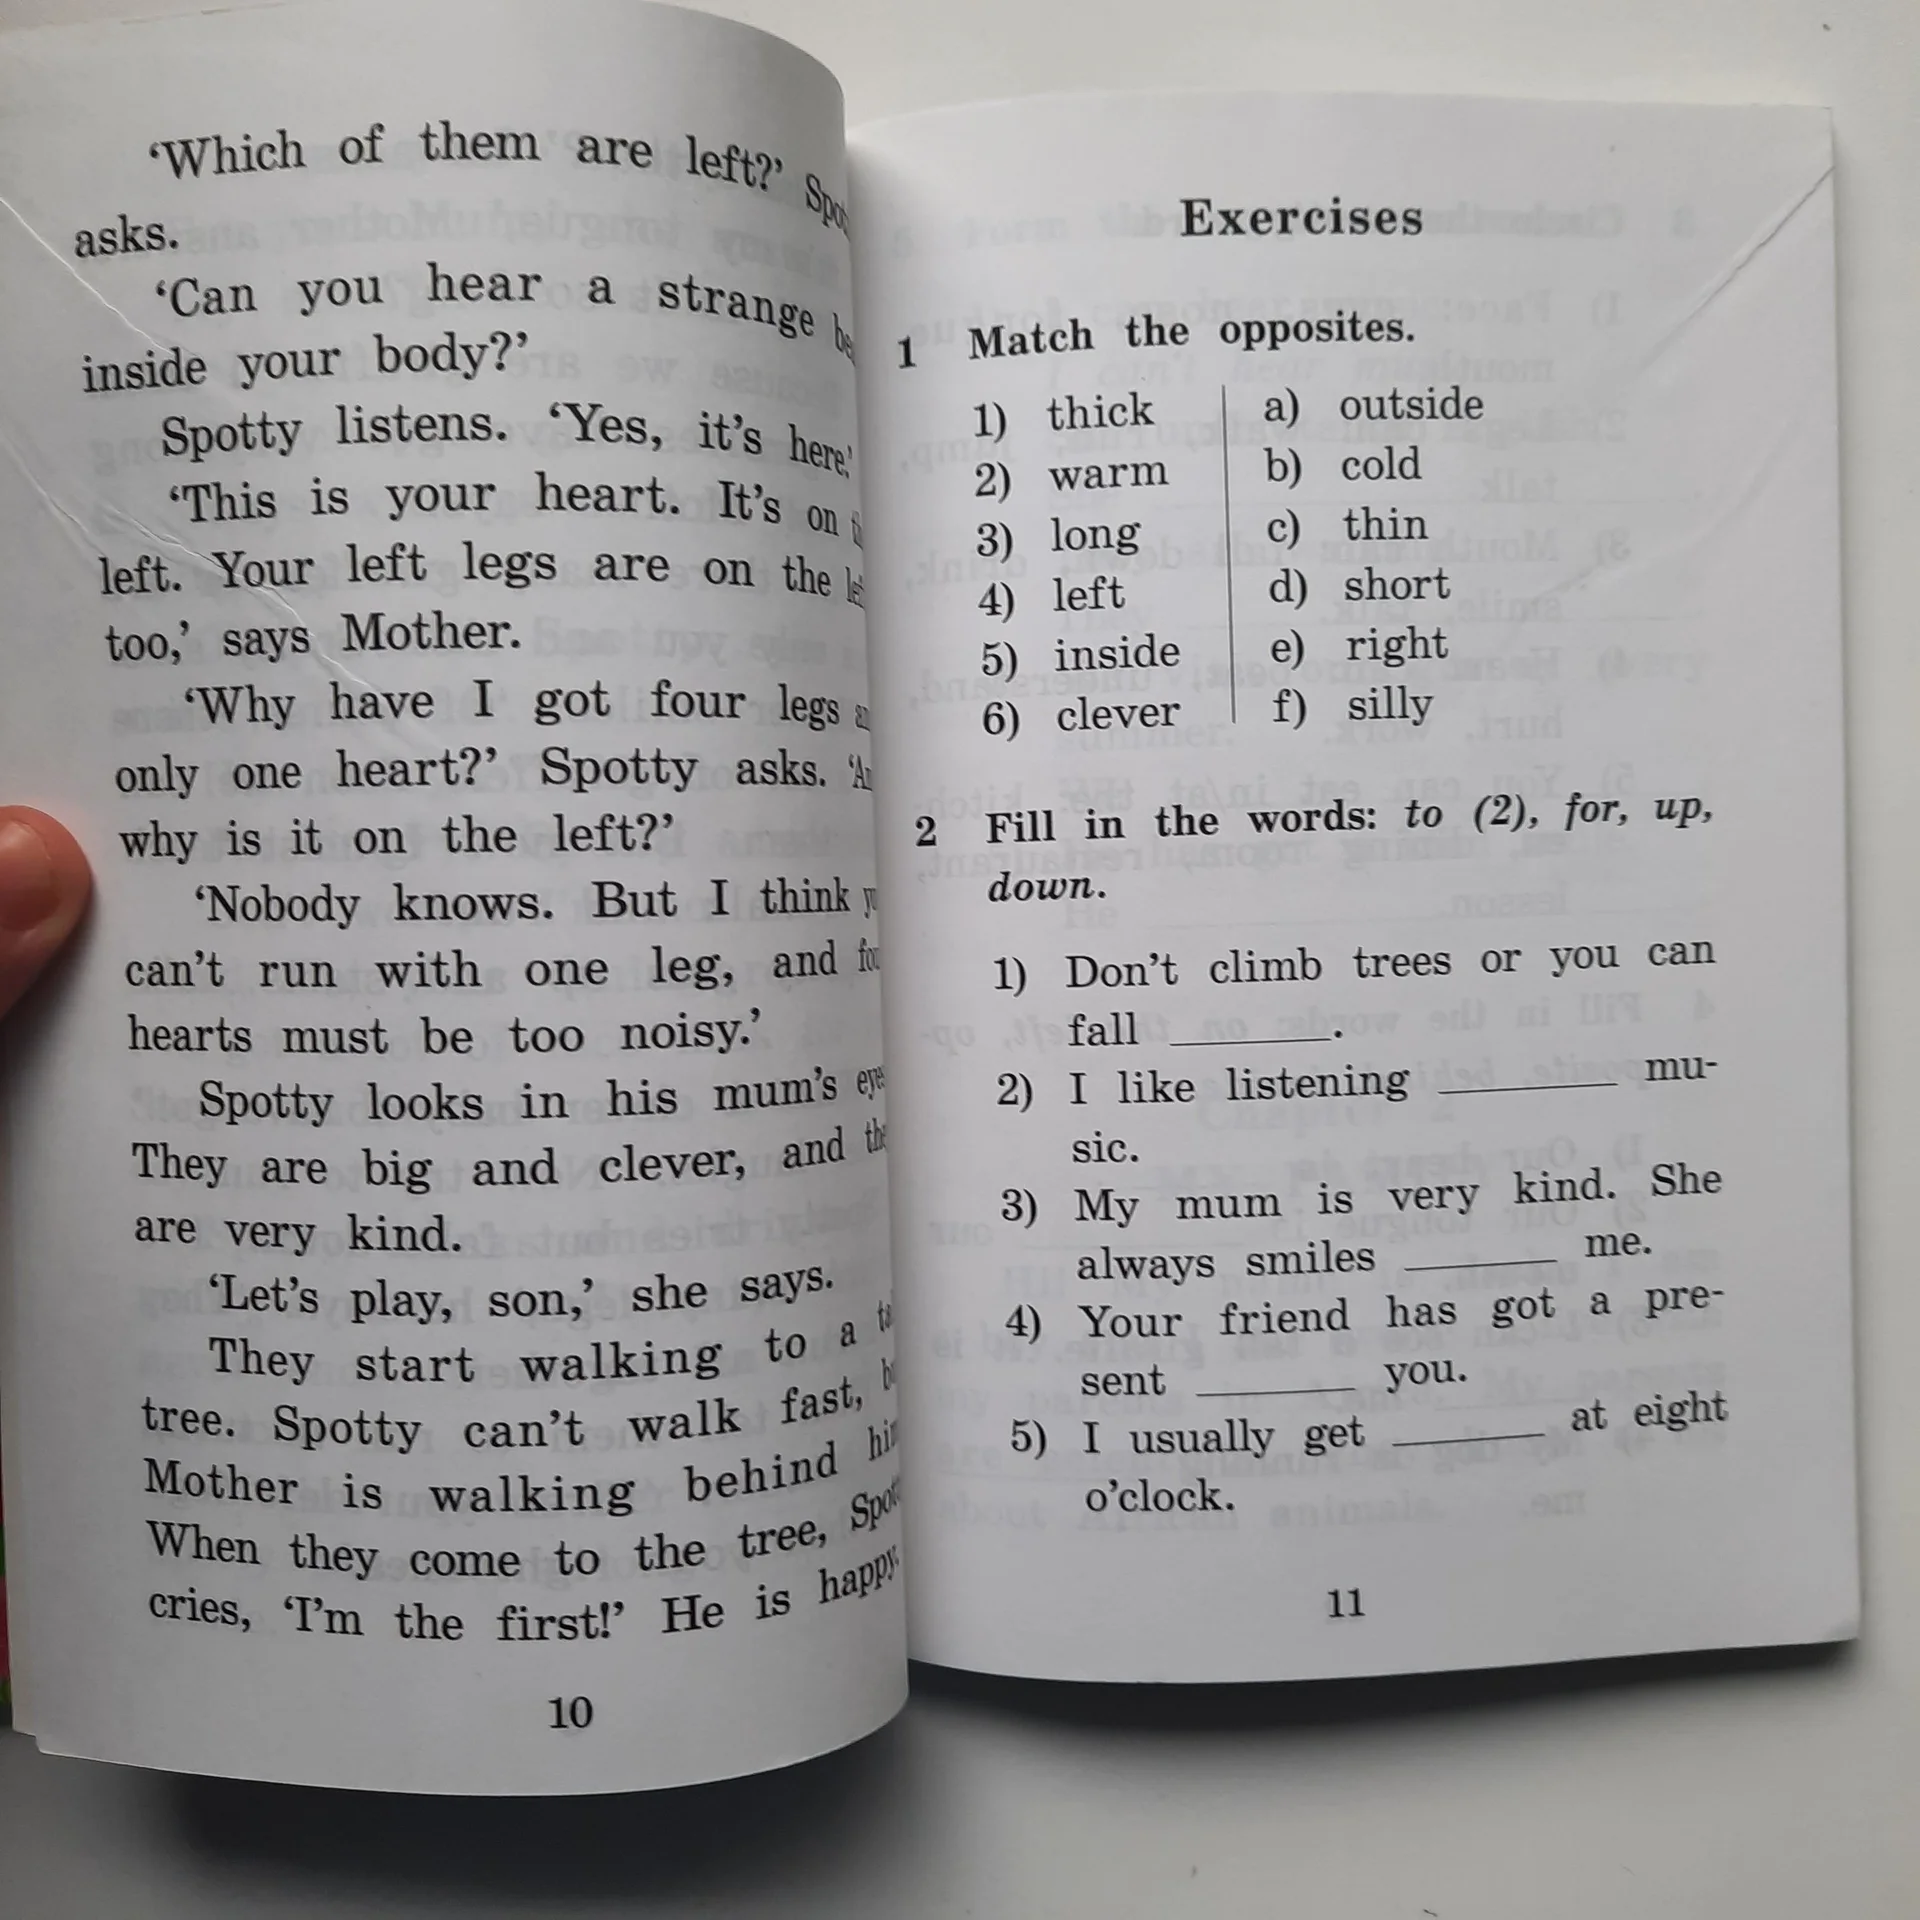 ‘Which of them are left?’
asks.
‘Can you hear a strange
inside your body?’
Spotty listens. ‘Yes, it’s here.’
‘This is your heart. It’s on
left. Your left legs are on the
too,’ says Mother.
‘Why have I got four legs
only one heart?’ Spotty asks.
why is it on the left?’
‘Nobody knows. But I think
can’t run with one leg, and
hearts must be too noisy.’
Spotty looks in his mum’s
They are big and clever, and
are very kind.
‘Let’s play, son,’ she says.
They start walking to a
tree. Spotty can’t walk fast,
Mother is walking behind
When they come to the tree,
cries, ‘I’m the first!’ He is happy.
10
Exercises
1 Match the opposites.
1) thick a) outside
2) warm b) cold
3) long c) thin
4) left d) short
5) inside e) right
6) clever f) silly
2 Fill in the words: to (2), for, up,
down.
1) Don’t climb trees or you can
fall ________.
2) I like listening ________ mu-
sic.
3) My mum is very kind. She
always smiles ________ me.
4) Your friend has got a pre-
sent ________ you.
5) I usually get ________ at eight
o’clock.
11